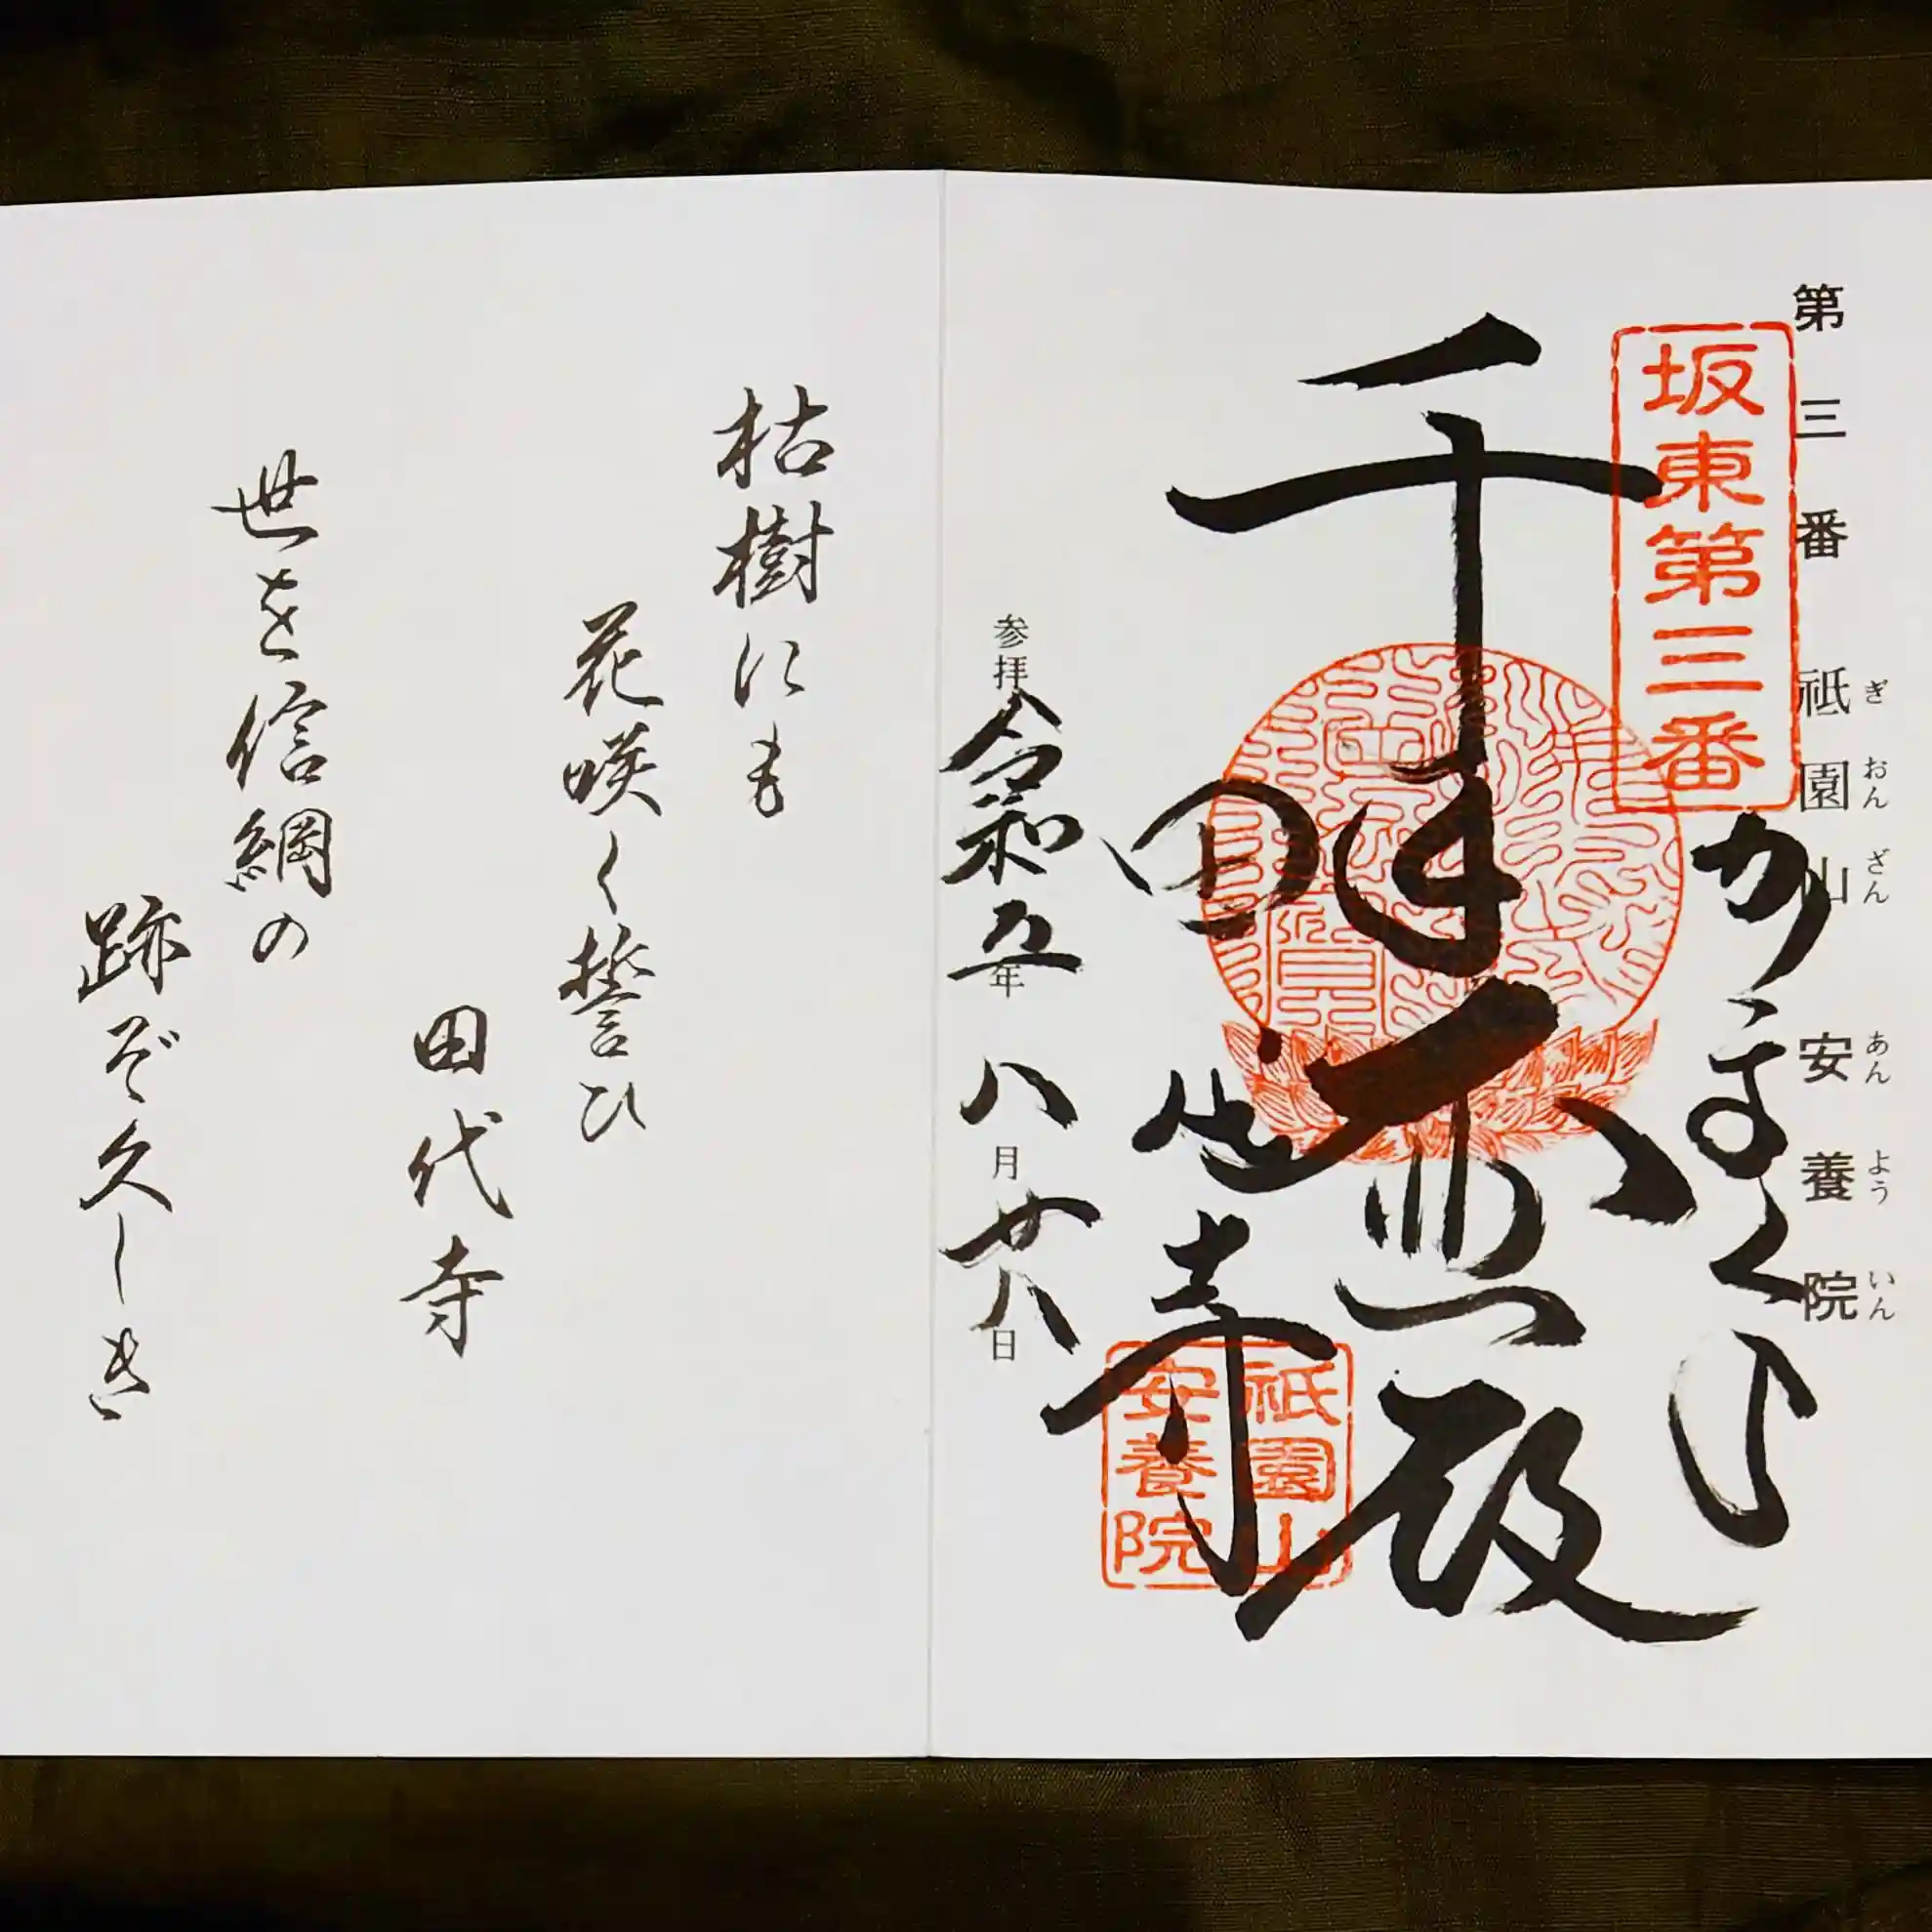 第三番 祇園山 安養院
ぎ おん ざん あん よう いん
坂東第三番
かまくら
千手大悲殿
田代寺
祇園山
安養院
参拝 令和五年 八月廿八日
枯樹にも
花咲く誓ひ
田代寺
世を信綱の
跡ぞ久しき